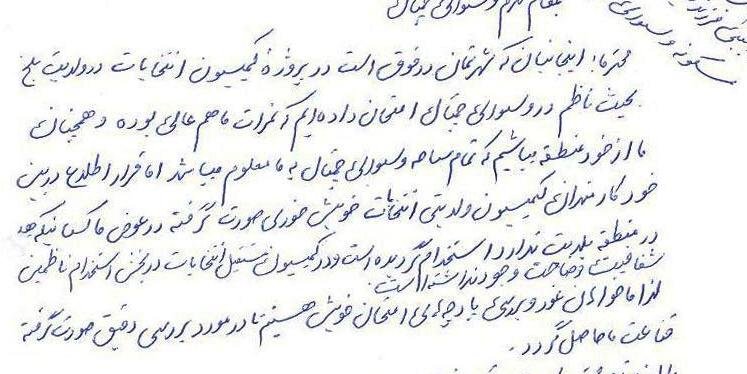 بمقام محترم ولسوالی چمتال
مسکونه ولسوالی
محترما: اینجانبان که شهرتمان در فوق است در پروژۀ کمیسیون انتخابات در ولایت بلخ
بحیث ناظم در ولسوالی چمتال امتحان داده ایم که نمرات ما هم عالی بوده و همچنان
ما از خود منطقه میباشیم که تمام ساحه ولسوالی چمتال به ما معلوم میباشد اما قرار اطلاع در بین
خود کارمندان کمیسیون ولایتی انتخابات خویش خوری صورت گرفته در عوض ما کسانیکه
در منطقه بلدیت ندارد استخدام گردیده است و در کمیسیون مستقل انتخابات در بخش استخدام ناظمین
شفافیت وضاحت وجود نداشته است.
لذا ما خواهان غور و بررسی پارچه های امتحان خویش هستیم تا در مورد بررسی دقیق صورت گرفته
قناعت ما حاصل گردد.